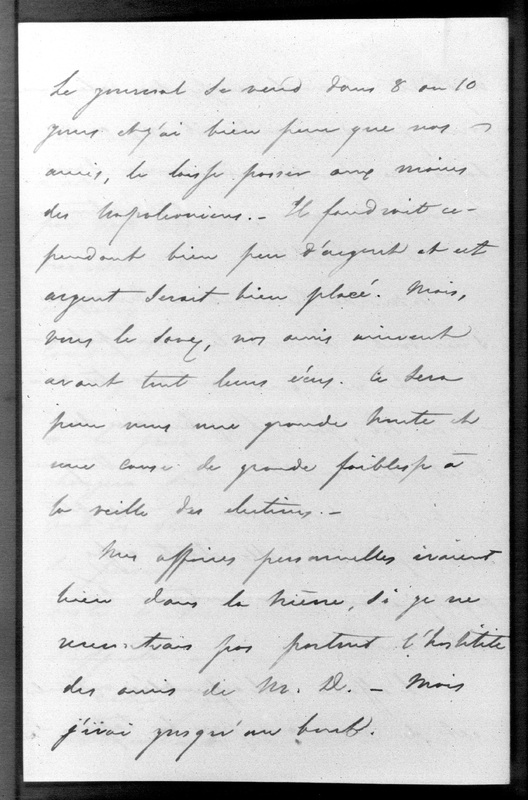 Le journal se vend dans 8 ou 10
jours et j'ai bien peur que nos
amis, le laisse passer aux mains
des Napoléoniens. — Il faudroit ce-
pendant bien peu d'argent et cet
argent serait bien placé. Mais,
vous le savez, nos amis aiment
avant tout leurs écus. Ce sera
pour nous une grande honte et
une cause de grande faiblesse à
la veille des élections. —
Mes affaires personnelles iraient
bien dans la Nièvre, si je ne
rencontrais pas partout l'hostilité
des amis de M. D. — Mais
j'irai jusqu'au bout.